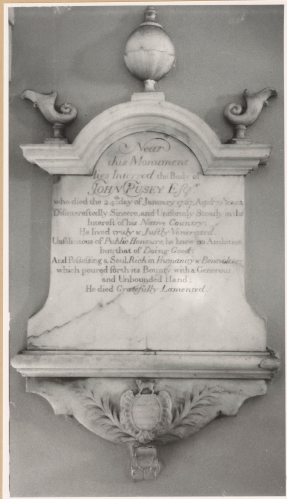 Near
this Monument
lies Interred the Body of
JOHN PUSEY ESQ.r
who died the 24.th day of January 1767 Aged 70 Years.
Disinterestedly Sincere, and Uniformly Steady in the
Interest of his Native Country;
He lived truly & Justly Honoured.
Unsolicitous of Public Honours, he knew no Ambition
but that of Doing Good;
And Possessing a Soul Rich in Humanity & Benevolence
which poured forth its Bounty with a Generous
and Unbounded Hand;
He died Gratefully Lamented.